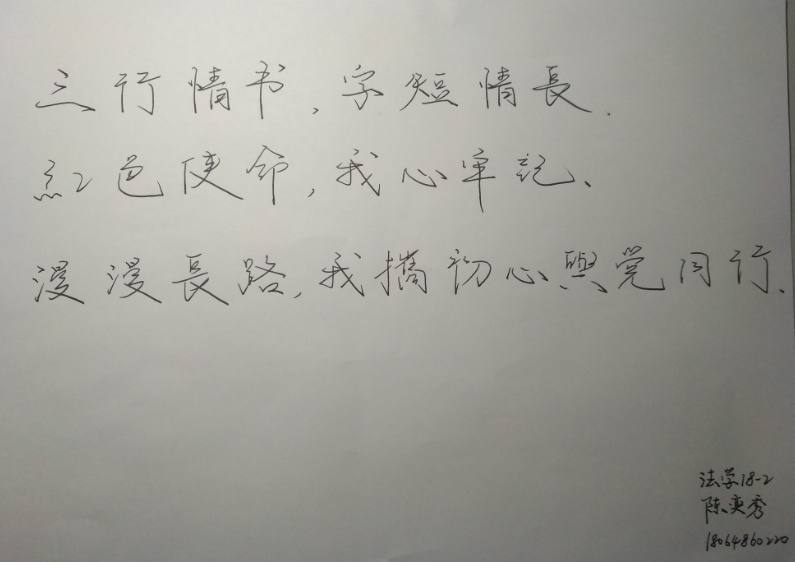 三行情书,字短情長.
紅色使命,我心牢記、
漫漫長路,我攜初心與党同行、
法学18-2
陈奕秀
18064860220